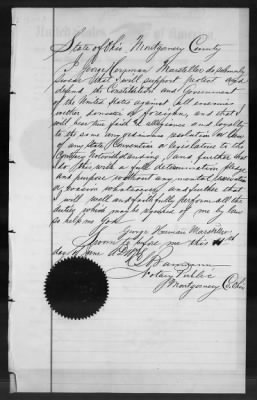 State of Ohio Montgomery County
I George Herrman Marsteller do solemnly
swear that I will support protect and
defend the Constitution and Government
of the United States against all enemies
wether domestic or foreign, and that I
will bear true faith allegiance and loyalty
to the same any ordinance, resolution or law
of any State Convention or legislature to the
Contrary Notwithstanding, and further that
I do this with a full determination pledge
and purpose without any mental reservation
or evasion whatsoever, and further that
I will well and faithfully perform all the
duties which may be required of me by law
so help me God
George Herrman Marsteller
Sworn to before me this 11th
day June A.D.
Notary Public
Montgomery Co. Ohio